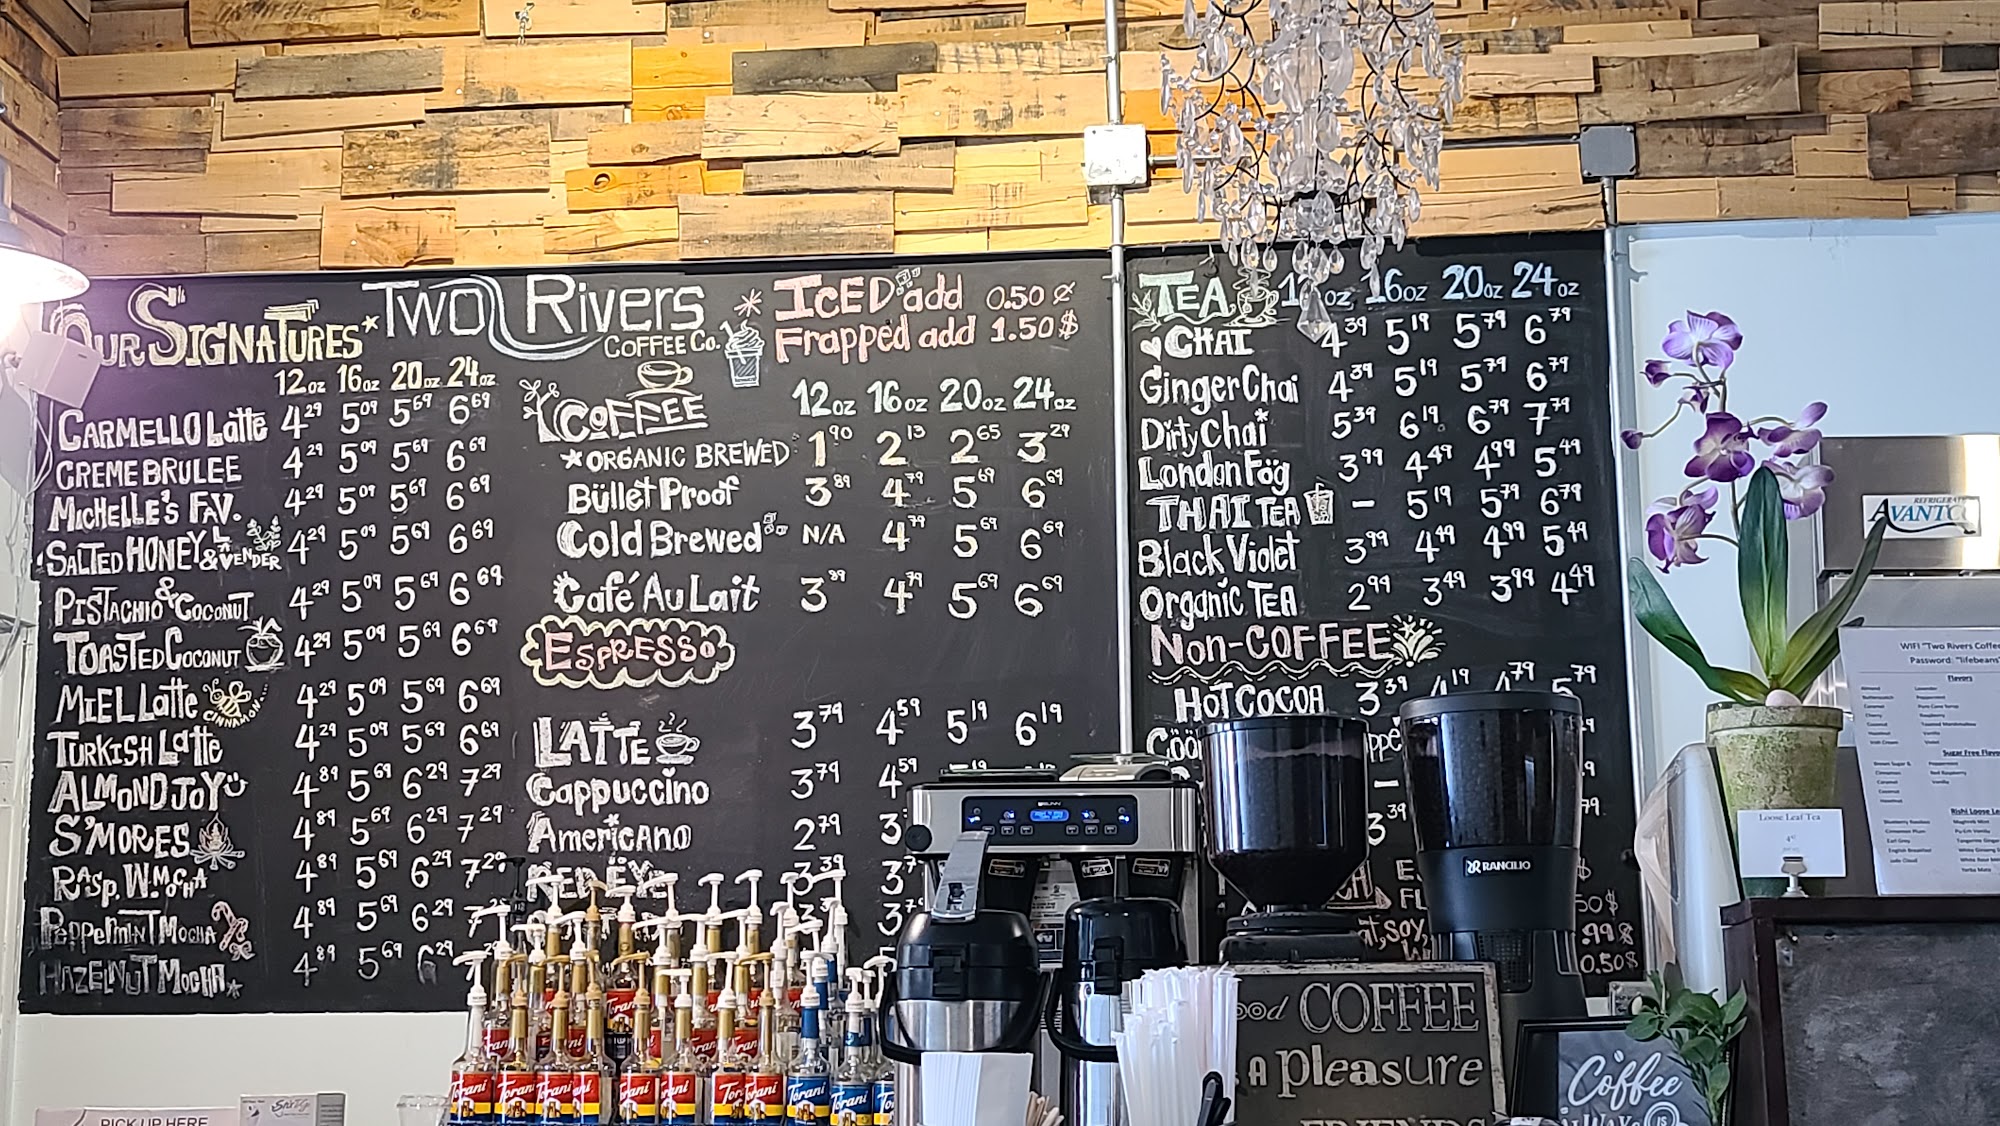 Our Signatures
12oz 16oz 20oz 24oz
Carmello Latte 4.29 5.09 5.69 6.69
Creme Brulee 4.29 5.09 5.69 6.69
Michelle's Fav. 4.29 5.09 5.69 6.69
Salted Honey & Lavender 4.29 5.09 5.69 6.69
Pistachio & Coconut 4.29 5.09 5.69 6.69
Toasted Coconut 4.29 5.09 5.69 6.69
Miel Latte Cinnamon 4.29 5.09 5.69 6.69
Turkish Latte 4.29 5.09 5.69 6.69
Almond Joy 4.89 5.69 6.29 7.29
S'mores 4.89 5.69 6.29 7.29
Rasp. W. Mocha 4.89 5.69 6.29 7.29
Peppermint Mocha 4.89 5.69 6.29
Hazelnut Mocha 4.89 5.69 6.29
Two Rivers
Coffee Co.
Iced add 0.50 ¢
Frapped add 1.50 $
Coffee
12oz 16oz 20oz 24oz
Organic Brewed 1.90 2.13 2.65 3.29
Bullet Proof 3.89 4.79 5.69 6.69
Cold Brewed N/A 4.79 5.69 6.69
Café Au Lait 3.89 4.79 5.69 6.69
Espresso
Latte 3.79 4.59 5.19 6.19
Cappuccino 3.79 4.59
Americano 2.79
Red Eye 3.39
Tea
16oz 20oz 24oz
Chai 4.39 5.19 5.79 6.79
Ginger Chai 4.39 5.19 5.79 6.79
Dirty Chai 5.39 6.19 6.79 7.79
London Fog 3.99 4.49 4.99 5.49
Thai Tea – 5.19 5.79 6.79
Black Violet 3.99 4.49 4.99 5.49
Organic Tea 2.99 3.49 3.99 4.49
Non-Coffee
Hot Cocoa 3.39 4.19 4.79 5.79
.99 $
0.50 $
BUNN
RANCILIO
REFRIGERATION
AVANTCO
WIFI "Two Rivers Coffee
Password: "lifebeans"
Flavors
Sugar Free Flavo
Rishi Loose Le
Loose Leaf Tea
Torani
Torani
Torani
Torani
Torani
Torani
Torani
Torani
COFFEE
A pleasure
FRIENDS
Coffee
ALWAYS IS
PICK UP HERE